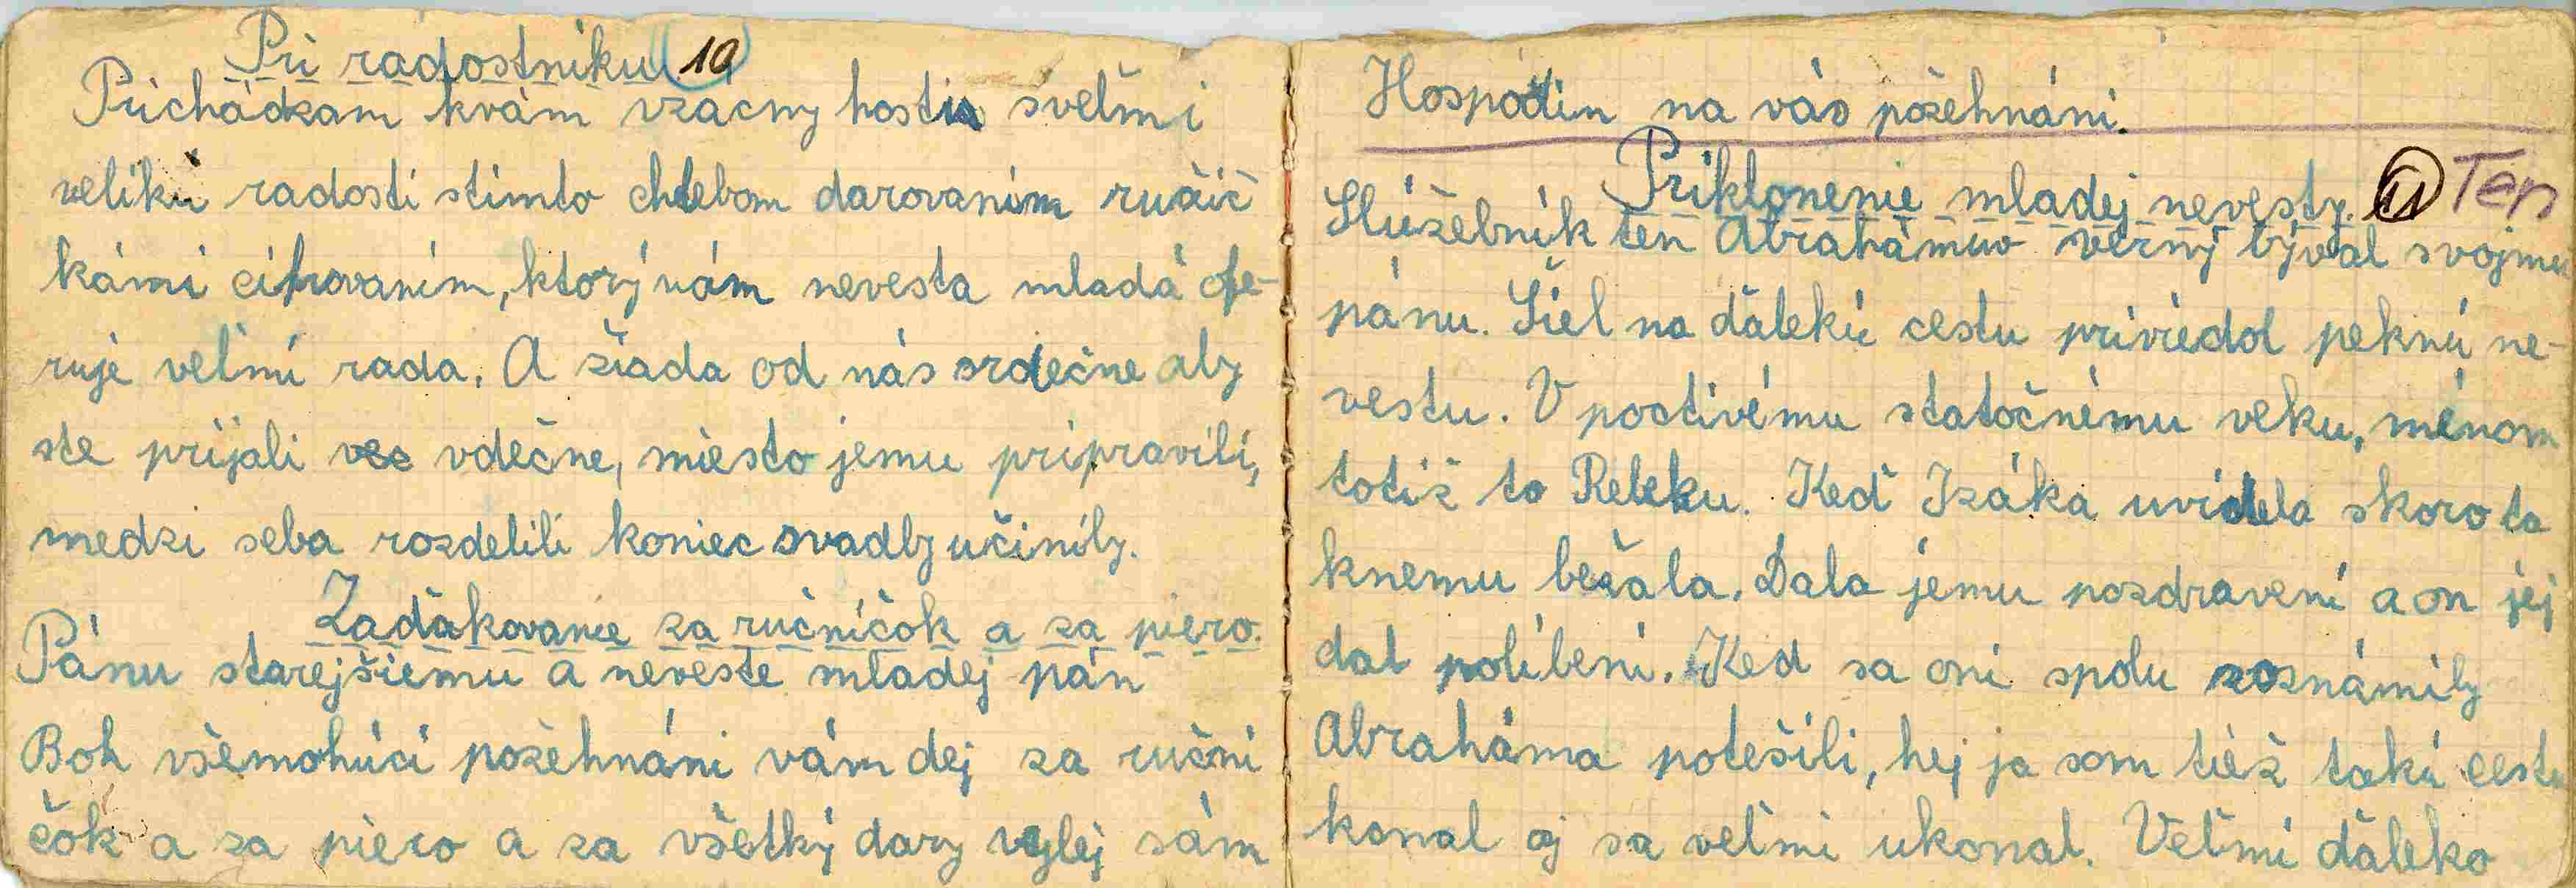 Pri radostniku 10
Prichádzam kvám vzacny hostia sveľmi
velikú radosti stimto chlebom darovaním ručič
kámi cifrovaním, ktorý vám nevesta mladá ofe-
ruje veľmi rada. A žiada od nás srdečne aby
ste prijali vec vdečne, miesto jemu pripravili,
medzi seba rozdelili koniec svadby učinily.
Zaďakovanie za ručníčok a za piero.
Pánu starejšiemu a neveste mladej pán
Boh všemohúci požehnáni vám dej za ručni
čok a za piero a za všetký dary vylej sám
Hospodin na vás požehnáni.
Priklonenie mladej nevesty. 11 Ten
Slúžebník ten Abrahámuv verný býval svojmu
pánu. Šiel na ďalekú cestu priviedol peknú ne-
vestu. V poctivému statočnému veku, menom
totiž to Rebeku. Keď Izáka uvidela skoro ta
knemu bežala. Dala jemu pozdraveni a on jej
dal políbeni. Keď sa oni spolu zoznámily
Abraháma potešili, hej ja som tiež takú cestu
konal aj sa veľmi ukonal. Veľmi ďaleko